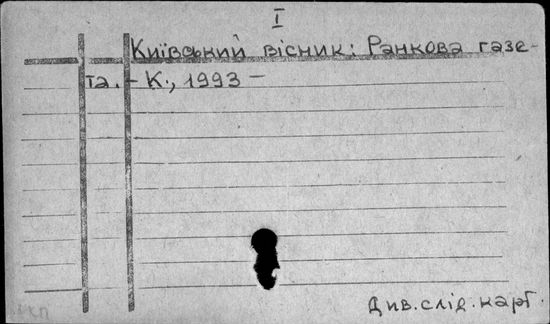 I
Київський вісник: Ранкова газе-
та. – К., 1993 –
Див. слід. карт.